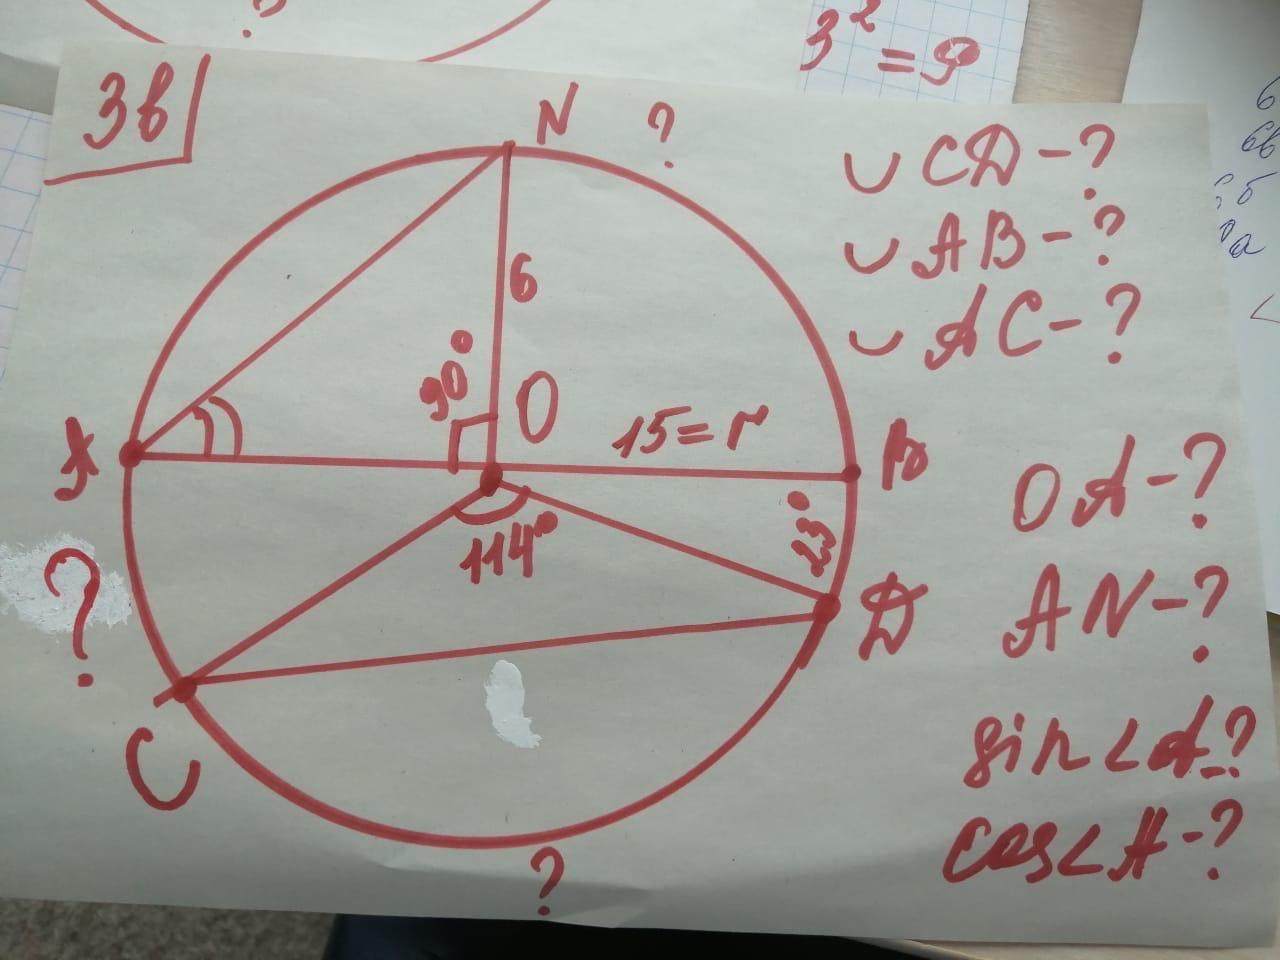 ?
3² = 9
3в
N ?
∪ CD - ?
∪ AB - ?
∪ AC - ?
6
90°
O
15 = r
A
B
OA - ?
114°
23°
?
D
AN - ?
C
sin < A - ?
cos < A - ?
?